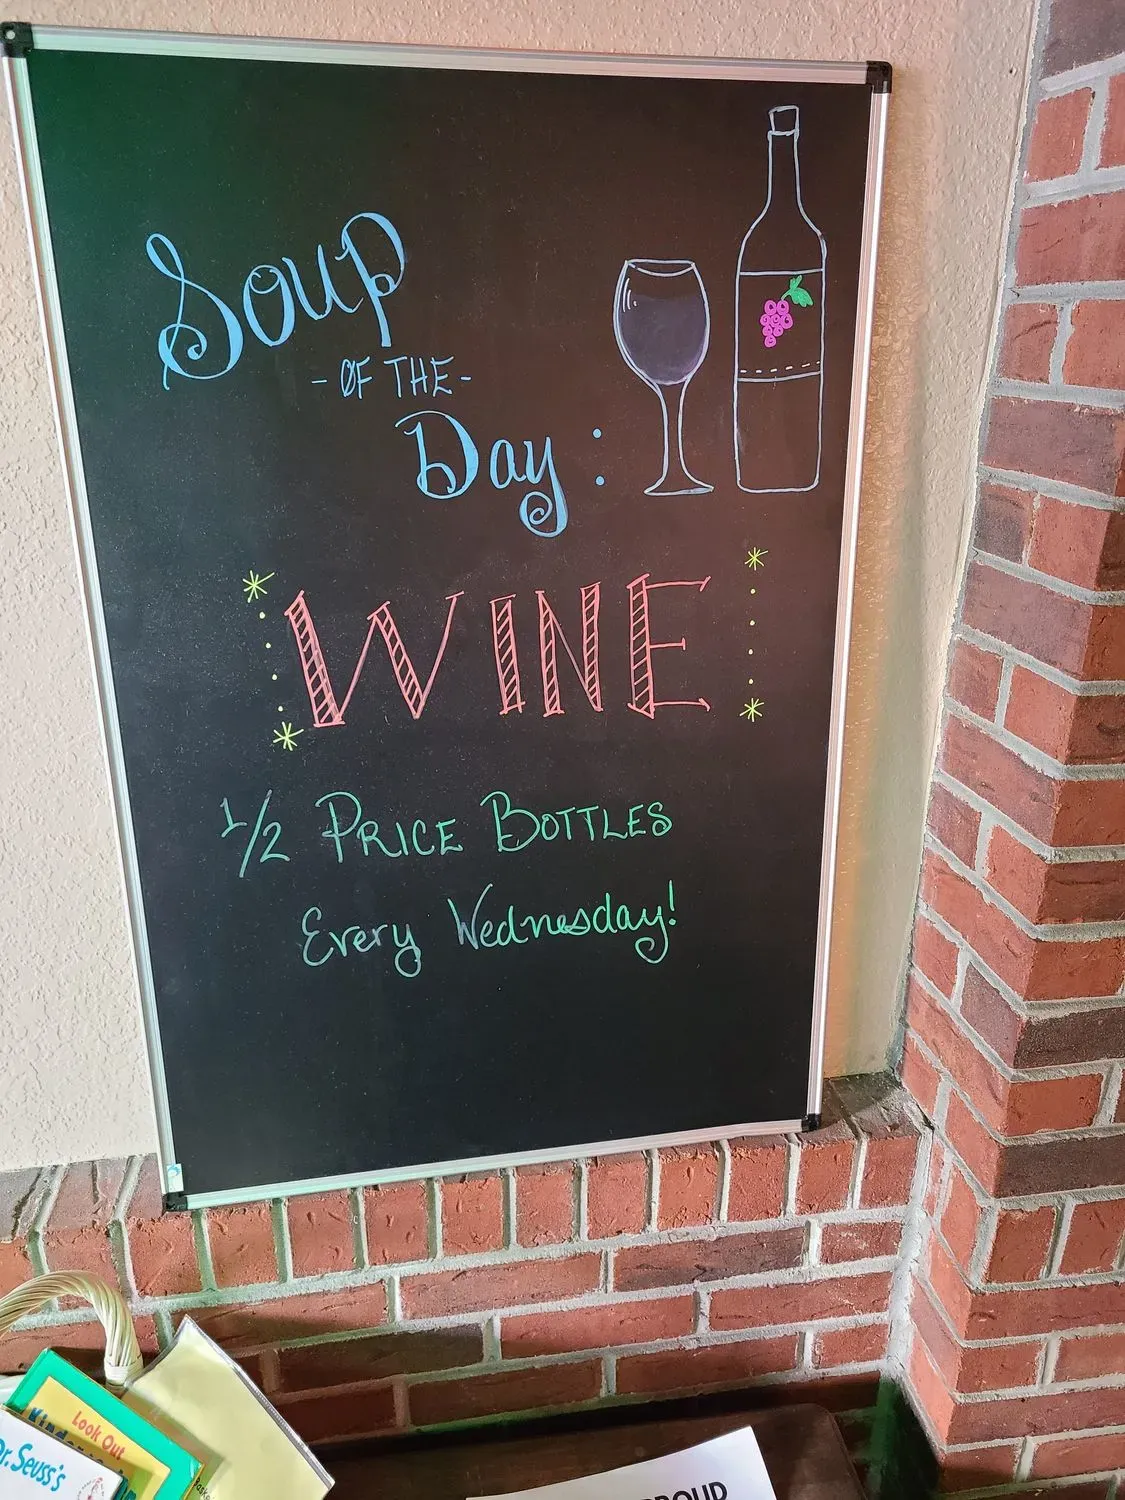 Soup
- OF THE -
Day :
WINE
1/2 PRICE BOTTLES
Every Wednesday!
Look Out
Dr. Seuss's